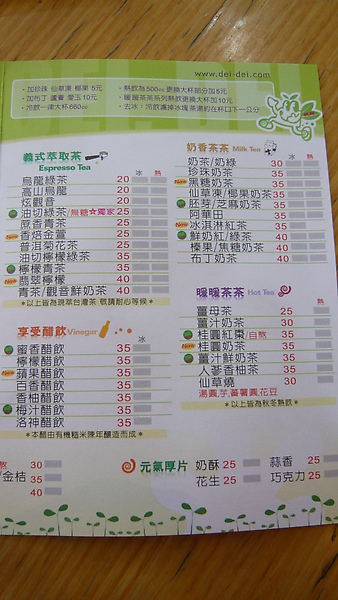 www.dei-dei.com
・加珍珠 仙草凍 椰果 5元
・加布丁 蘆薈 愛玉 10元
・冷飲一律大杯 660cc
・熱飲為500cc 更換大杯部分加5元
・暖暖茶茶系列熱飲更換大杯加10元
・去冰，冷飲濾掉冰塊 茶湯約在杯口下一公分
義式萃取茶
Espresso Tea
冰 熱
烏龍綠茶 20
高山烏龍 20
炫觀音 20
油切綠茶/無糖☆獨家 25
蔗香青茶 25
香焙金萱 25
普洱菊花茶 25
油切檸檬綠茶 35
檸檬青茶 35
New 翡翠檸檬 40
青茶/觀音鮮奶茶 40
＊以上皆為現萃台灣茶 敬請耐心等候＊
享受醋飲 Vinegar
冰 熱
蜜香醋飲 35
檸檬醋飲 35
New 蘋果醋飲 35
百香醋飲 35
香柚醋飲 35
梅汁醋飲 35
洛神醋飲 35
＊本醋由有機糙米陳年釀造而成＊
奶香茶茶 Milk Tea
冰 熱
奶茶/奶綠 30
珍珠奶茶 35
New 黑糖奶茶 35
仙草凍/椰果奶茶 35
胚芽/芝麻奶茶 35
阿華田 35
New 冰淇淋紅茶 35
鮮奶紅/綠茶 40
榛果/焦糖奶茶 40
布丁奶茶 40
暖暖茶茶 Hot Tea
冰 熱
薑母茶 25
薑汁奶茶 30
桂圓紅棗/自熬 35
New 桂圓奶茶 35
薑汁鮮奶茶 35
人參香柚茶 35
仙草燒 35
湯圓,芋,蕃薯圓,花豆
＊以上皆為秋冬熱飲＊
熬 30
/金桔 35
40
元氣厚片
奶酥 25
蒜香 25
花生 25
巧克力 25